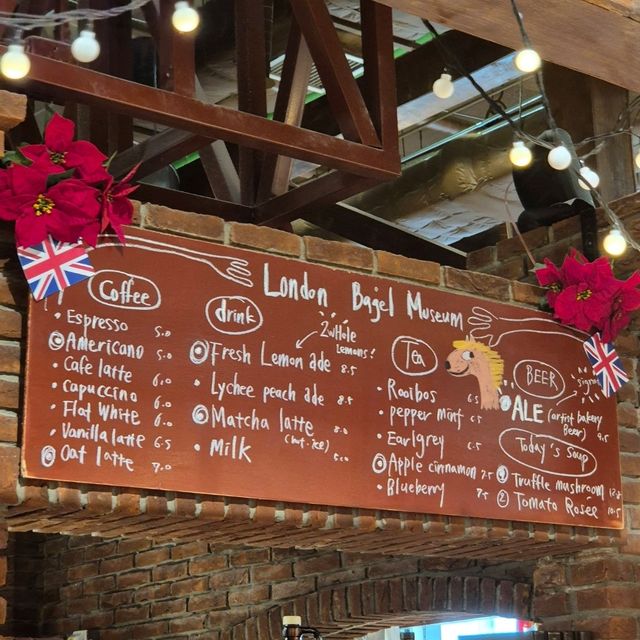 London Bagel Museum
Coffee
Espresso 5.0
Americano 5.0
Cafe latte 6.0
Cappuccino 6.0
Flat White 6.0
Vanilla latte 6.5
Oat latte 7.0
drink
2 whole
Lemons!
Fresh Lemon ade 8.5
Lychee peach ade 8.5
Matcha latte
(hot·ice)
Milk 5.0
Tea
Rooibos 6.5
pepper mint 6.5
Earlgrey 6.5
Apple cinnamon 7.5
Blueberry 7.5
BEER
ALE (artist bakery
Beer) 9.5
Today's Soup
1 Truffle mushroom
2 Tomato Rosee